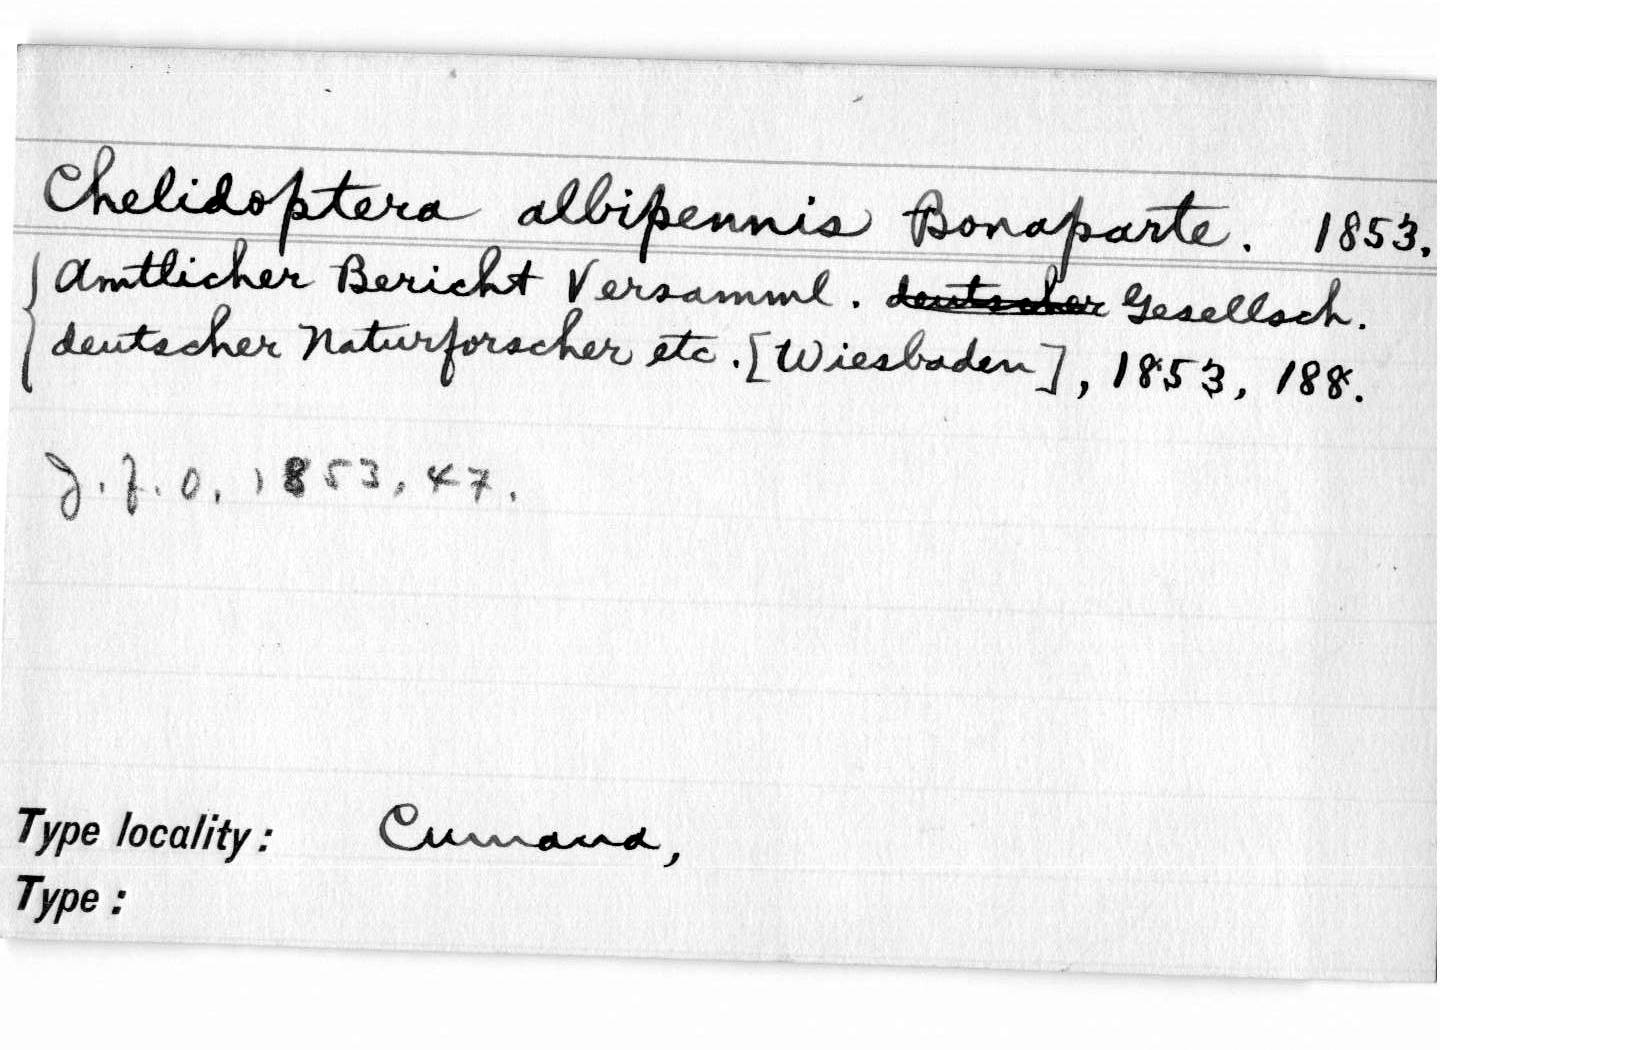 Chelidoptera albipennis Bonaparte. 1853.
Amtlicher Bericht Versamml. deutscher Gesellsch.
deutscher Naturforscher etc. [Wiesbaden], 1853, 188.
J. f. O. 1853, 47.
Type locality: Cumana,
Type: